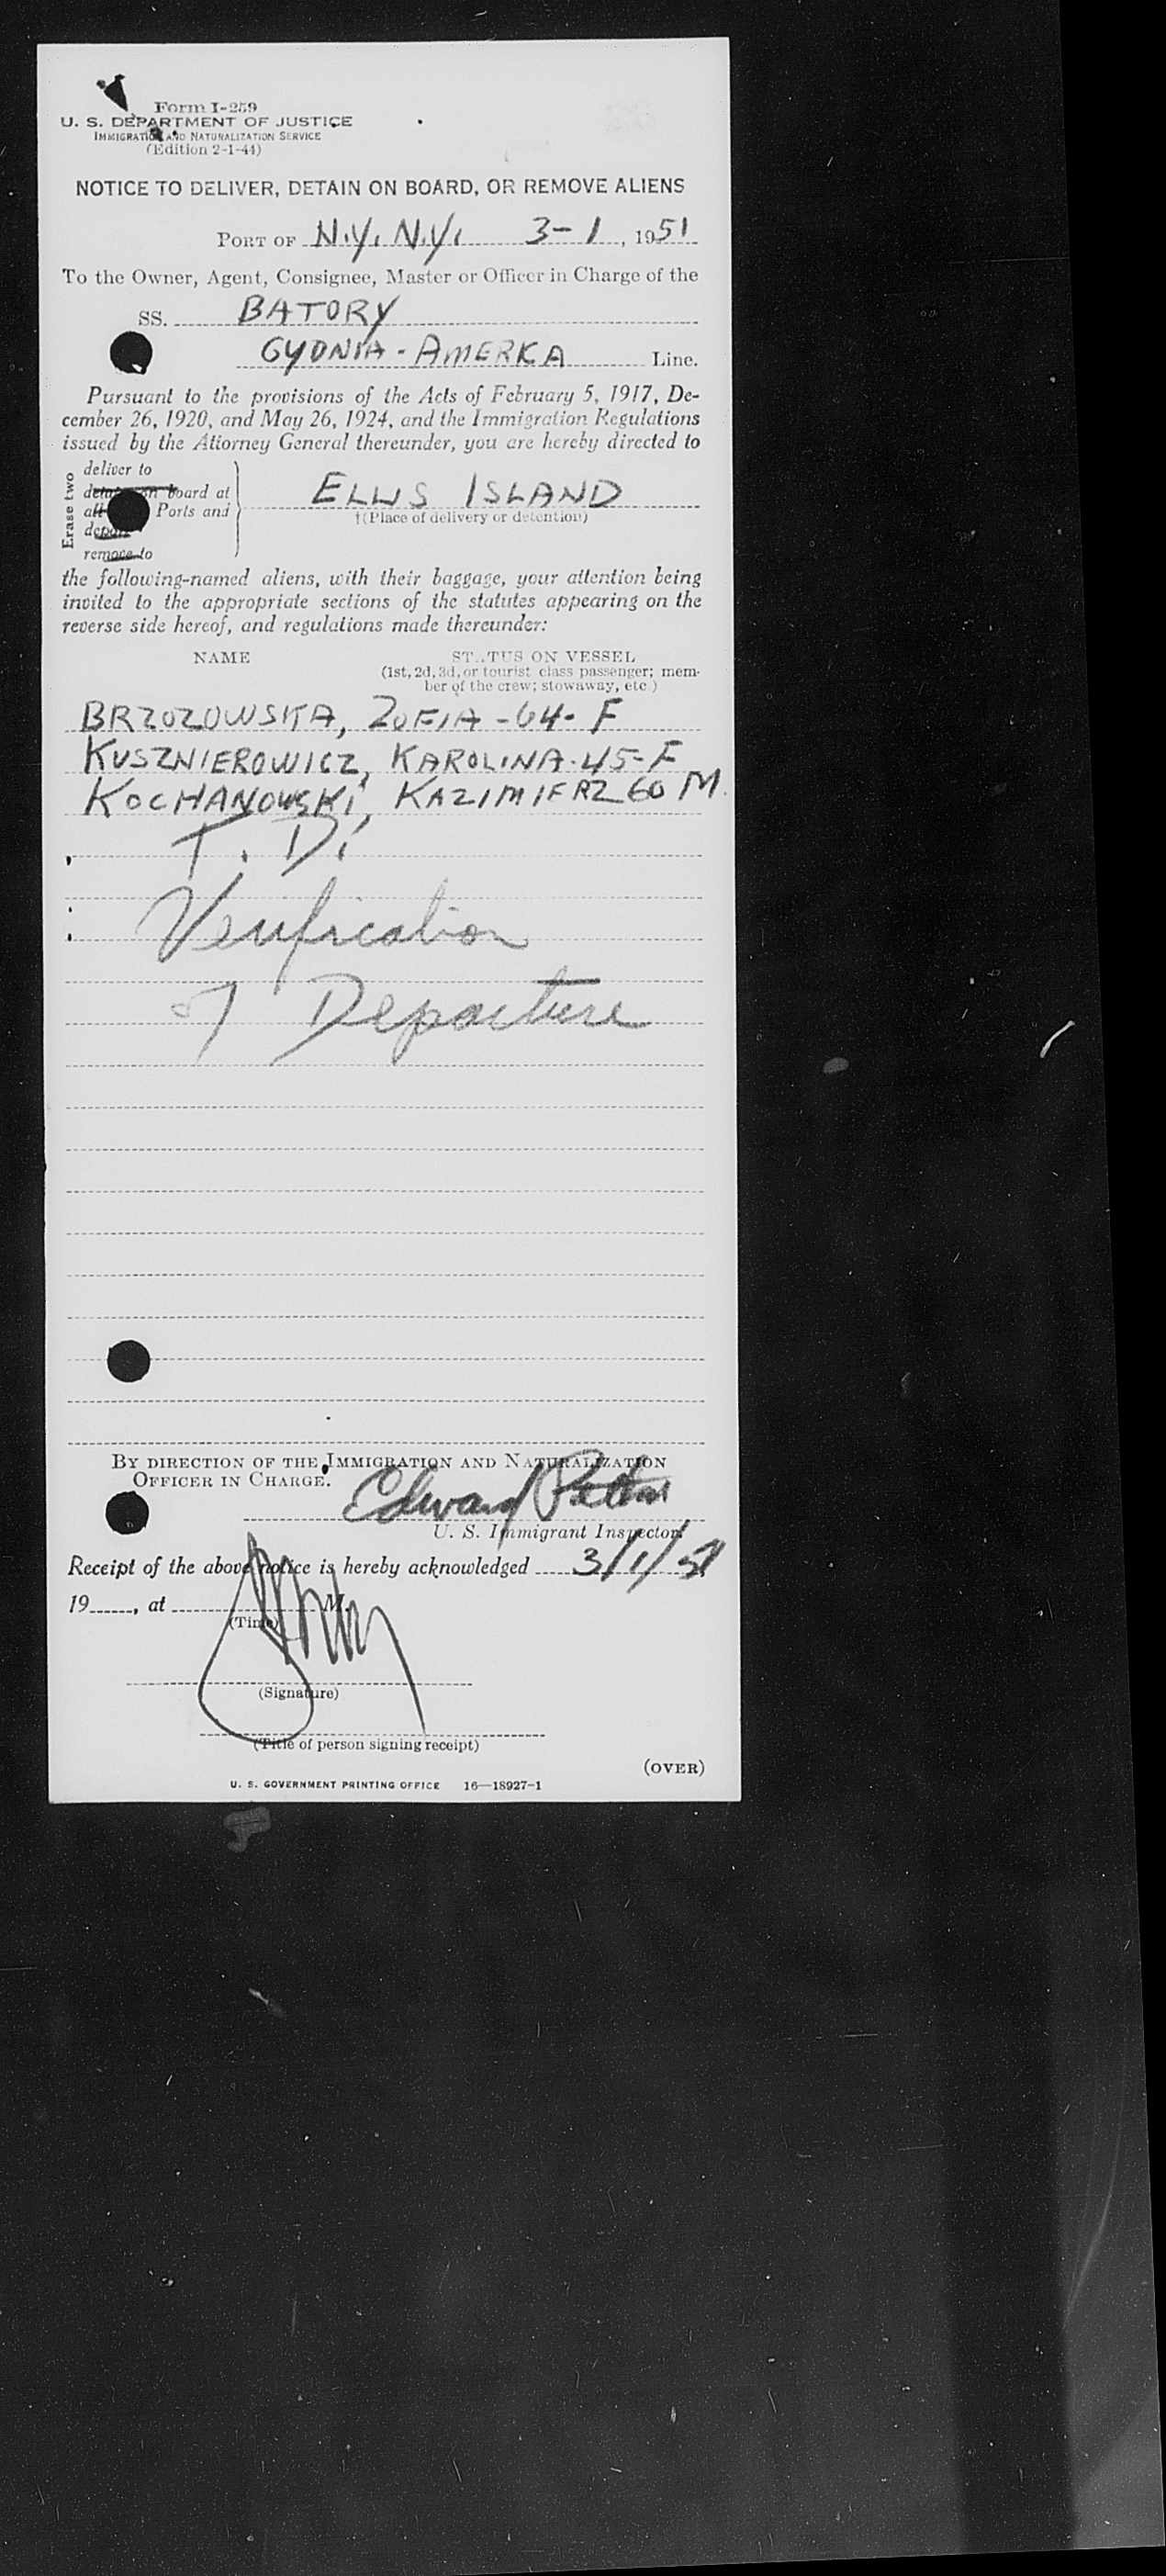 Form I-259
U. S. DEPARTMENT OF JUSTICE
IMMIGRATION AND NATURALIZATION SERVICE
(Edition 2-1-44)
NOTICE TO DELIVER, DETAIN ON BOARD, OR REMOVE ALIENS
PORT OF N.Y. N.Y. 3-1, 1951
To the Owner, Agent, Consignee, Master or Officer in Charge of the
SS. BATORY
GYDNIA-AMERKA Line.
Pursuant to the provisions of the Acts of February 5, 1917, De-
cember 26, 1920, and May 26, 1924, and the Immigration Regulations
issued by the Attorney General thereunder, you are hereby directed to
Erase two
deliver to
detain on board at
all Ports and
deport
remove to
ELLIS ISLAND
†(Place of delivery or detention)
the following-named aliens, with their baggage, your attention being
invited to the appropriate sections of the statutes appearing on the
reverse side hereof, and regulations made thereunder:
NAME STATUS ON VESSEL
(1st, 2d, 3d, or tourist class passenger; mem-
ber of the crew; stowaway, etc.)
BRZOZOWSKA, ZOFIA-64-F
KUSZNIEROWICZ, KAROLINA-45-F
KOCHANOWSKI, KAZIMIERZ 60 M.
T. D.
Verification
of Departure
BY DIRECTION OF THE IMMIGRATION AND NATURALIZATION
OFFICER IN CHARGE.
Edward
U. S. Immigrant Inspector.
Receipt of the above notice is hereby acknowledged 3/1/51,
19___, at ___ M.
(Time)
(Signature)
(Title of person signing receipt)
(OVER)
U. S. GOVERNMENT PRINTING OFFICE 16—18927-1